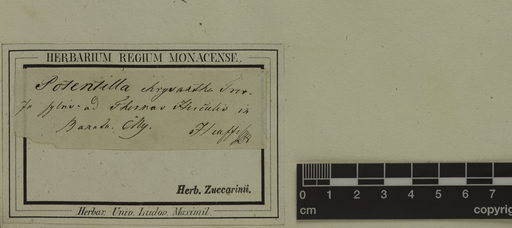 HERBARIUM REGIUM MONACENSE.
Potentilla chrysantha Trev.
ad Thermas Herculis in
Banatu.
Heuffel
Herb. Zuccarinii.
Herbar. Univ. Ludov. Maximil.
0 1 2 3 4 5 6 7
cm copyrig